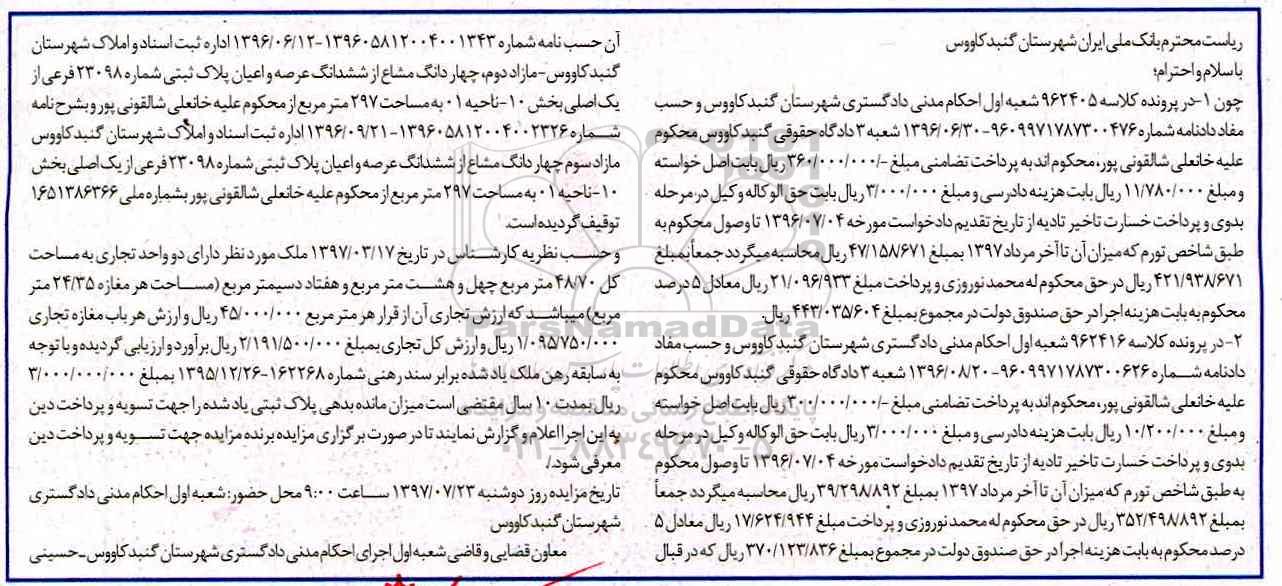 ریاست محترم بانک ملی ایران شهرستان گنبدکاووس
با سلام و احترام؛
چون ۱-در پرونده کلاسه ۹۶۲۴۰۵ شعبه اول احکام مدنی دادگستری شهرستان گنبدکاووس و حسب
مفاد دادنامه شماره ۹۶۰۹۹۷۱۷۸۷۳۰۰۴۷۶-۱۳۹۶/۰۶/۳۰ شعبه ۳ دادگاه حقوقی گنبدکاووس محکوم
علیه خانعلی شالقونی پور، محکوم اند به پرداخت تضامنی مبلغ -/۳۶۰/۰۰۰/۰۰۰ ریال بابت اصل خواسته
و مبلغ ۱۱/۷۸۰/۰۰۰ ریال بابت هزینه دادرسی و مبلغ ۳/۰۰۰/۰۰۰ ریال بابت حق الوکاله وکیل در مرحله
بدوی و پرداخت خسارت تاخیر تادیه از تاریخ تقدیم دادخواست مورخه ۱۳۹۶/۰۷/۰۴ تا وصول محکوم به
طبق شاخص تورم که میزان آن تا آخر مرداد ۱۳۹۷ بمبلغ ۴۷/۱۵۸/۶۷۱ ریال محاسبه میگردد جمعاً بمبلغ
۴۲۱/۹۳۸/۶۷۱ ریال در حق محکوم له محمد نوروزی و پرداخت مبلغ ۲۱/۰۹۶/۹۳۳ ریال معادل ۵ درصد
محکوم به بابت هزینه اجرا در حق صندوق دولت در مجموع بمبلغ ۴۴۳/۰۳۵/۶۰۴ ریال.
۲-در پرونده کلاسه ۹۶۲۴۱۶ شعبه اول احکام مدنی دادگستری شهرستان گنبدکاووس و حسب مفاد
دادنامه شماره ۹۶۰۹۹۷۱۷۸۷۳۰۰۶۲۶-۱۳۹۶/۰۸/۲۰ شعبه ۳ دادگاه حقوقی گنبدکاووس محکوم
علیه خانعلی شالقونی پور، محکوم اند به پرداخت تضامنی مبلغ -/۳۰۰/۰۰۰/۰۰۰ ریال بابت اصل خواسته
و مبلغ ۱۰/۲۰۰/۰۰۰ ریال بابت هزینه دادرسی و مبلغ ۳/۰۰۰/۰۰۰ ریال بابت حق الوکاله وکیل در مرحله
بدوی و پرداخت خسارت تاخیر تادیه از تاریخ تقدیم دادخواست مورخه ۱۳۹۶/۰۷/۰۴ تا وصول محکوم
به طبق شاخص تورم که میزان آن تا آخر مرداد ۱۳۹۷ بمبلغ ۳۹/۲۹۸/۸۹۲ ریال محاسبه میگردد جمعاً
بمبلغ ۳۵۲/۴۹۸/۸۹۲ ریال در حق محکوم له محمد نوروزی و پرداخت مبلغ ۱۷/۶۲۴/۹۴۴ ریال معادل ۵
درصد محکوم به بابت هزینه اجرا در حق صندوق دولت در مجموع بمبلغ ۳۷۰/۱۲۳/۸۳۶ ریال که در قبال
آن حسب نامه شماره ۱۳۹۶۰۵۸۱۲۰۰۴۰۰۱۳۴۳-۱۳۹۶/۰۶/۱۲ اداره ثبت اسناد و املاک شهرستان
گنبدکاووس-مازاد دوم، چهار دانگ مشاع از ششدانگ عرصه و اعیان پلاک ثبتی شماره ۲۳۰۹۸ فرعی از
یک اصلی بخش ۱۰-ناحیه ۰۱ به مساحت ۲۹۷ متر مربع از محکوم علیه خانعلی شالقونی پور و بشرح نامه
شماره ۱۳۹۶۰۵۸۱۲۰۰۴۰۰۲۳۲۶-۱۳۹۶/۰۹/۲۱ اداره ثبت اسناد و املاک شهرستان گنبدکاووس
مازاد سوم چهار دانگ مشاع از ششدانگ عرصه و اعیان پلاک ثبتی شماره ۲۳۰۹۸ فرعی از یک اصلی بخش
۱۰-ناحیه ۰۱ به مساحت ۲۹۷ متر مربع از محکوم علیه خانعلی شالقونی پور بشماره ملی ۱۶۵۱۳۸۶۳۶۶
توقیف گردیده است.
و حسب نظریه کارشناس در تاریخ ۱۳۹۷/۰۳/۱۷ ملک مورد نظر دارای دو واحد تجاری به مساحت
کل ۴۸/۷۰ متر مربع چهل و هشت متر مربع و هفتاد دسیمتر مربع (مساحت هر مغازه ۲۴/۳۵ متر
مربع) میباشد که ارزش تجاری آن از قرار هر متر مربع ۴۵/۰۰۰/۰۰۰ ریال و ارزش هر باب مغازه تجاری
۱/۰۹۵/۷۵۰/۰۰۰ ریال و ارزش کل تجاری بمبلغ ۲/۱۹۱/۵۰۰/۰۰۰ ریال برآورد و ارزیابی گردیده و با توجه
به سابقه رهن ملک یاد شده برابر سند رهنی شماره ۱۶۲۲۶۸-۱۳۹۵/۱۲/۲۶ بمبلغ ۳/۰۰۰/۰۰۰/۰۰۰
ریال بمدت ۱۰ سال مقتضی است میزان مانده بدهی پلاک ثبتی یاد شده را جهت تسویه و پرداخت دین
به این اجرا اعلام و گزارش نمایند تا در صورت برگزاری مزایده برنده مزایده جهت تسویه و پرداخت دین
معرفی شود./
تاریخ مزایده روز دوشنبه ۱۳۹۷/۰۷/۲۳ ساعت ۹:۰۰ محل حضور: شعبه اول احکام مدنی دادگستری
شهرستان گنبدکاووس
معاون قضایی و قاضی شعبه اول اجرای احکام مدنی دادگستری شهرستان گنبدکاووس-حسینی
ParsNamadData
۰۲۱-۸۸۳۴۹۶۷۰-۵